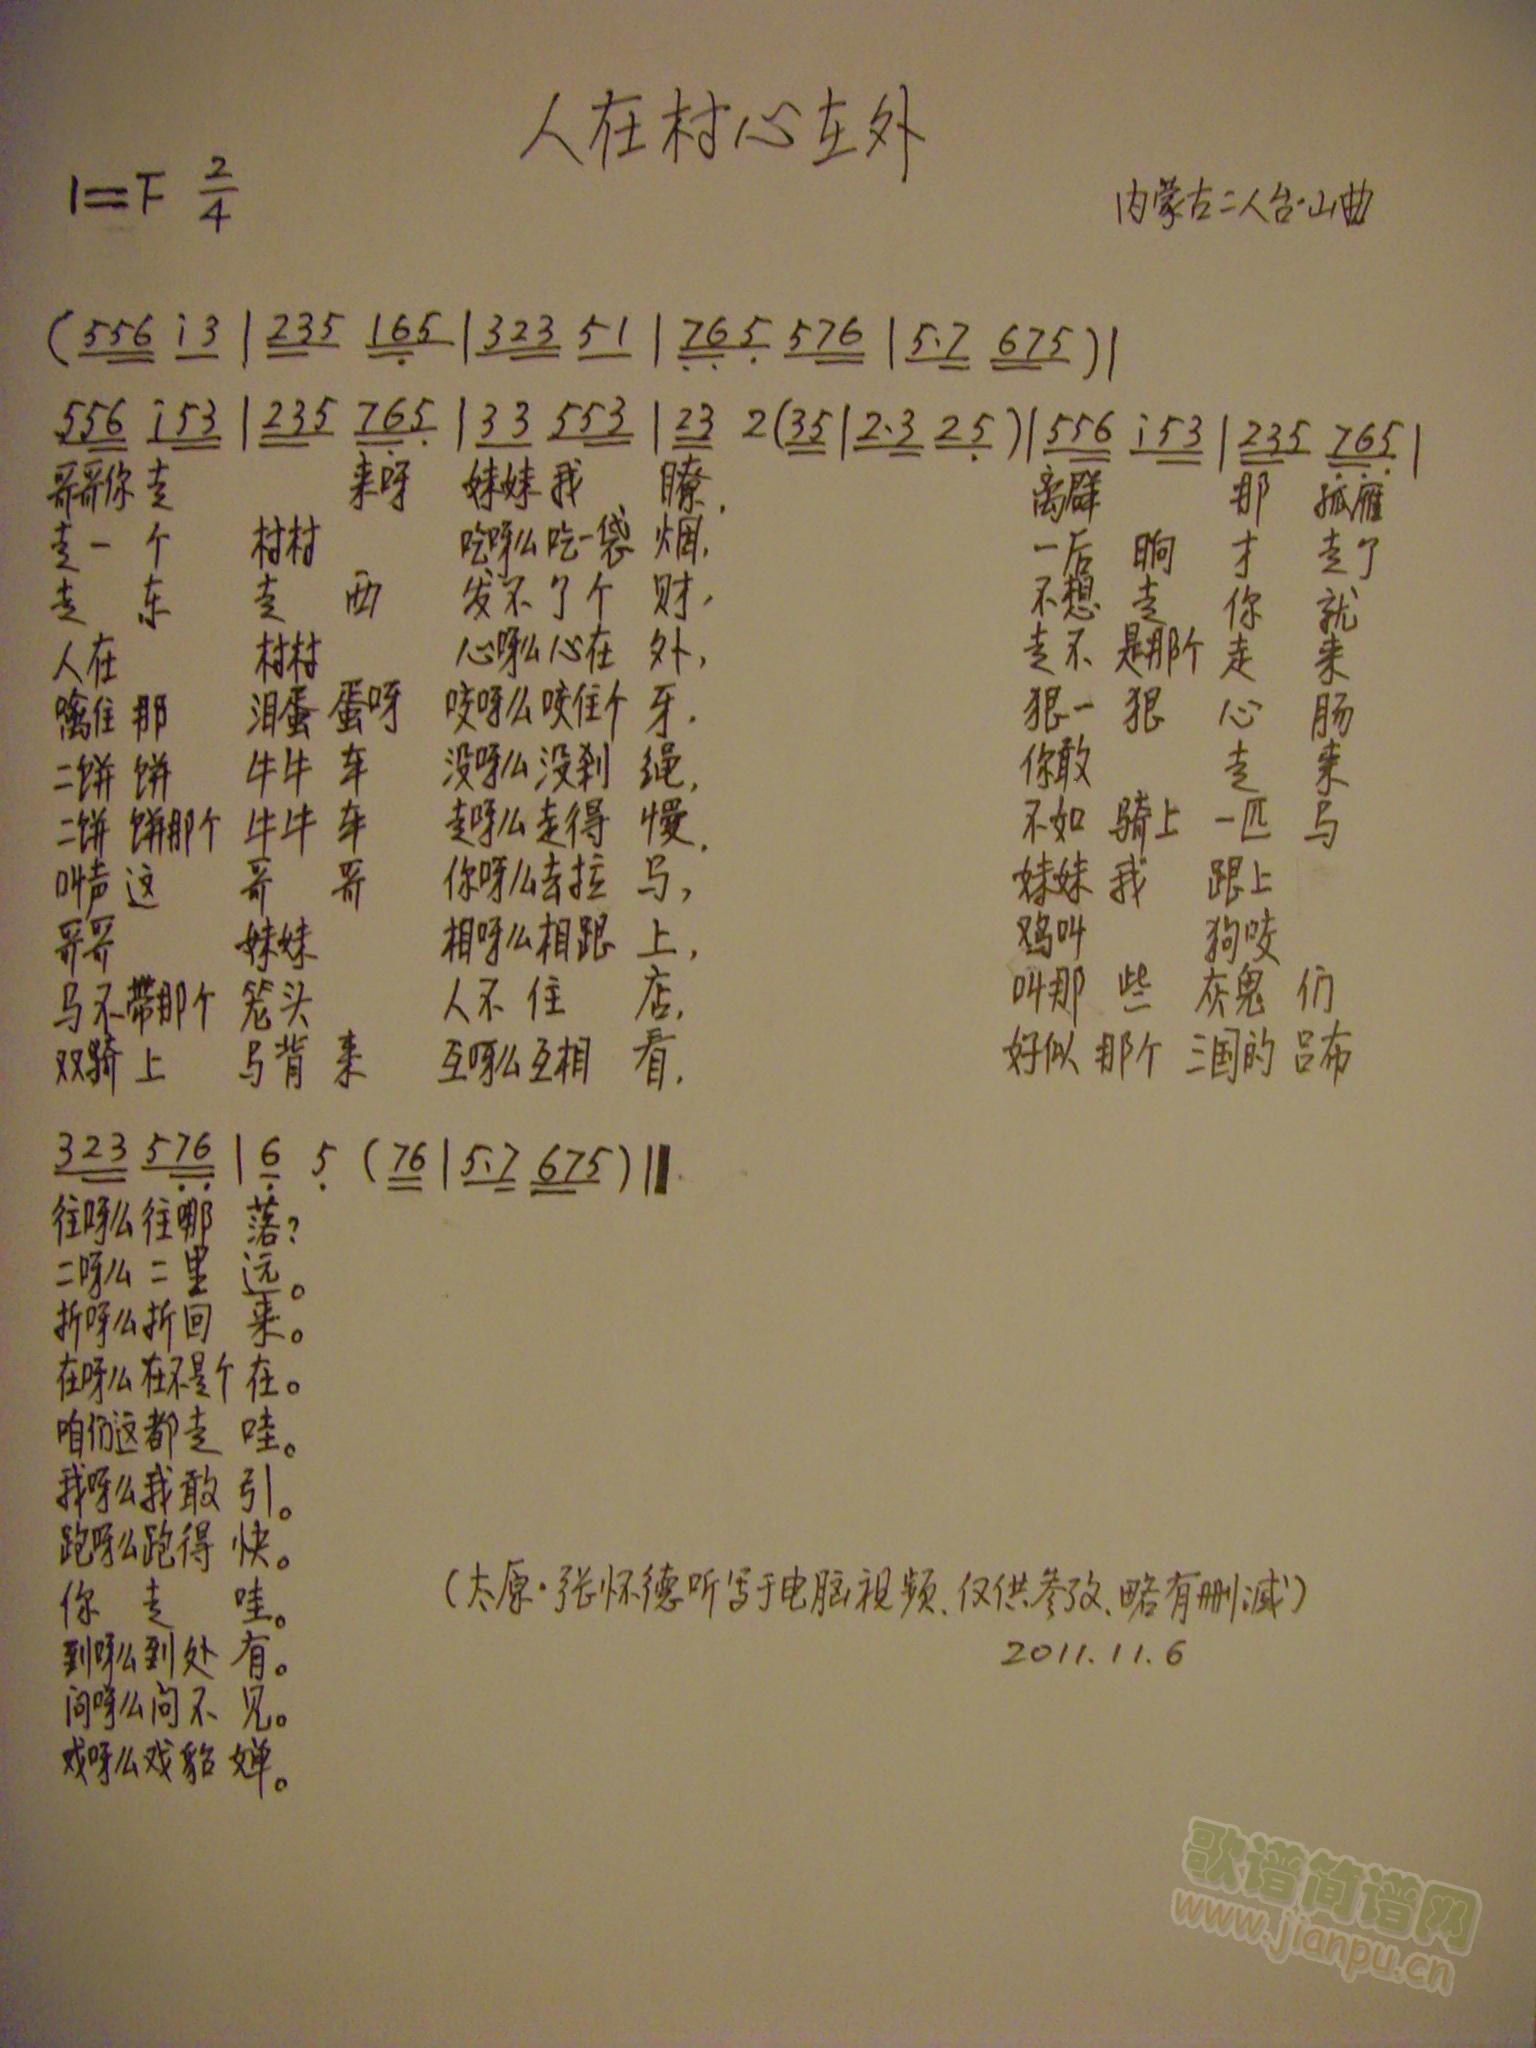 人在村心在外
1=F 2/4
内蒙古二人台·山曲
(556 i3 | 235 165 | 323 51 | 765 576 | 5·7 675 ) |
556 i53 | 235 765 | 33 553 | 23 2(35 | 2·3 25 ) | 556 i53 | 235 765 |
哥哥你走 来呀 妹妹我 瞭, 离群 那 孤雁
走一个 村村 吃呀么吃一袋烟, 一后晌才走了
走东走西 发不了个财, 不想走你就
人在 村村 心呀么心在外, 走不是那个走来
噙住那 泪蛋蛋呀 咬呀么咬住个牙, 狠一狠心肠
二饼饼 牛牛车 没呀么没刹绳, 你敢 走来
二饼饼那个 牛牛车 走呀么走得慢, 不如骑上一匹马
叫声这 哥哥 你呀么去拉马, 妹妹我 跟上
哥哥 妹妹 相呀么相跟上, 鸡叫 狗咬
马不带那个 笼头 人不住店, 叫那些灰鬼们
双骑上 马背来 互呀么互相看, 好似那个三国的吕布
323 576 | 6 5 (76 | 5·7 675 ) ||
往呀么往哪落?
二呀么二里远。
折呀么折回来。
在呀么在不是个在。
咱们这都走哇。
我呀么我敢引。
跑呀么跑得快。
你走哇。
到呀么到处有。
问呀么问不见。
戏呀么戏貂婵。
(太原·张怀德听写于电脑视频、仅供参考、略有删减)
2011.11.6
歌谱简谱网
www.jianpu.cn